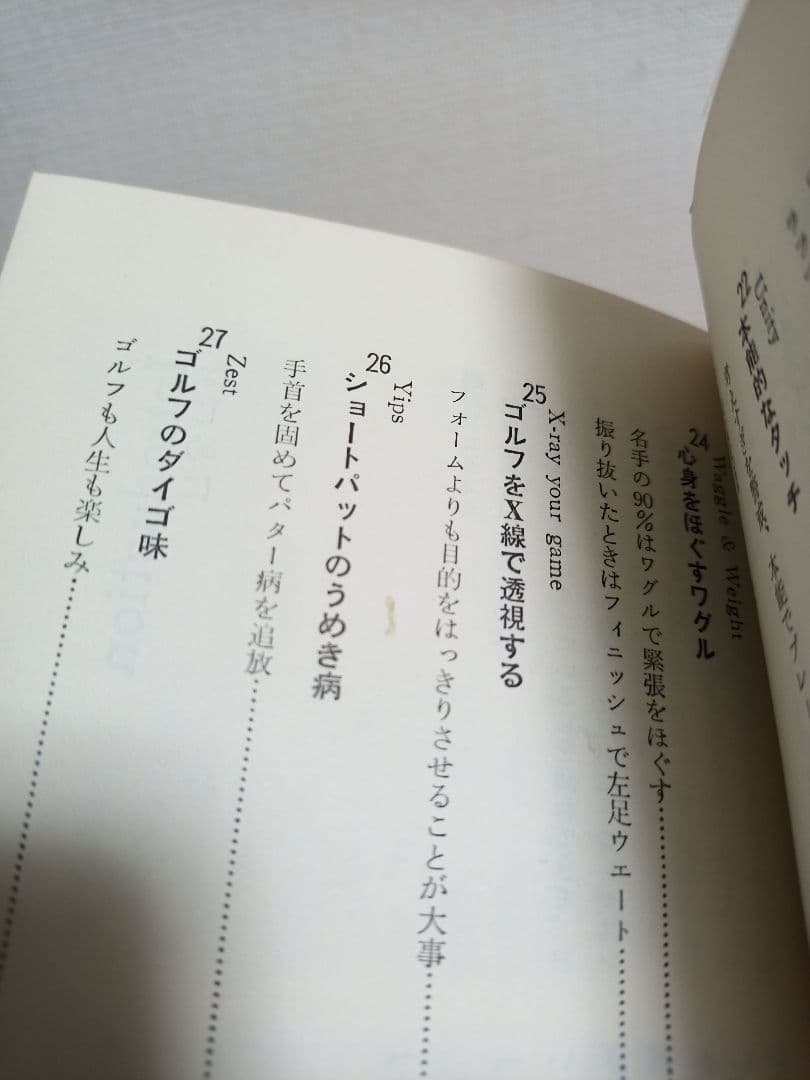 Unity
22 本能的なタッチ
Waggle & Weight
24 心身をほぐすワグル
名手の90%はワグルで緊張をほぐす
振り抜いたときはフィニッシュで左足ウエート
X-ray your game
25 ゴルフをX線で透視する
フォームよりも目的をはっきりさせることが大事
Yips
26 ショートパットのうめき病
手首を固めてパター病を追放
Zest
27 ゴルフのダイゴ味
ゴルフも人生も楽しみ